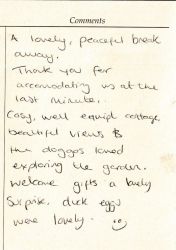 Comments
A lovely, peaceful break
away.
Thank you for
accomodating us at the
last minute.
Cosy, well equipt cottage,
beautiful views &
the doggos loved
exploring the garden.
Welcome gifts a lovely
Surprise, duck eggs
were lovely. :)